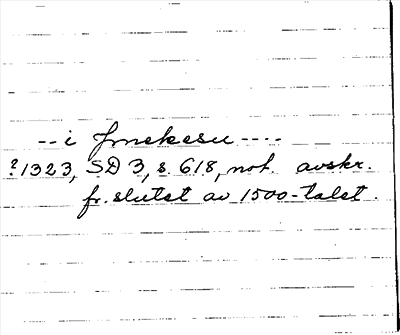 -- i Jmekesu ----
?1323, SD 3, s. 618, not. avskr.
fr. slutet av 1500-talet.